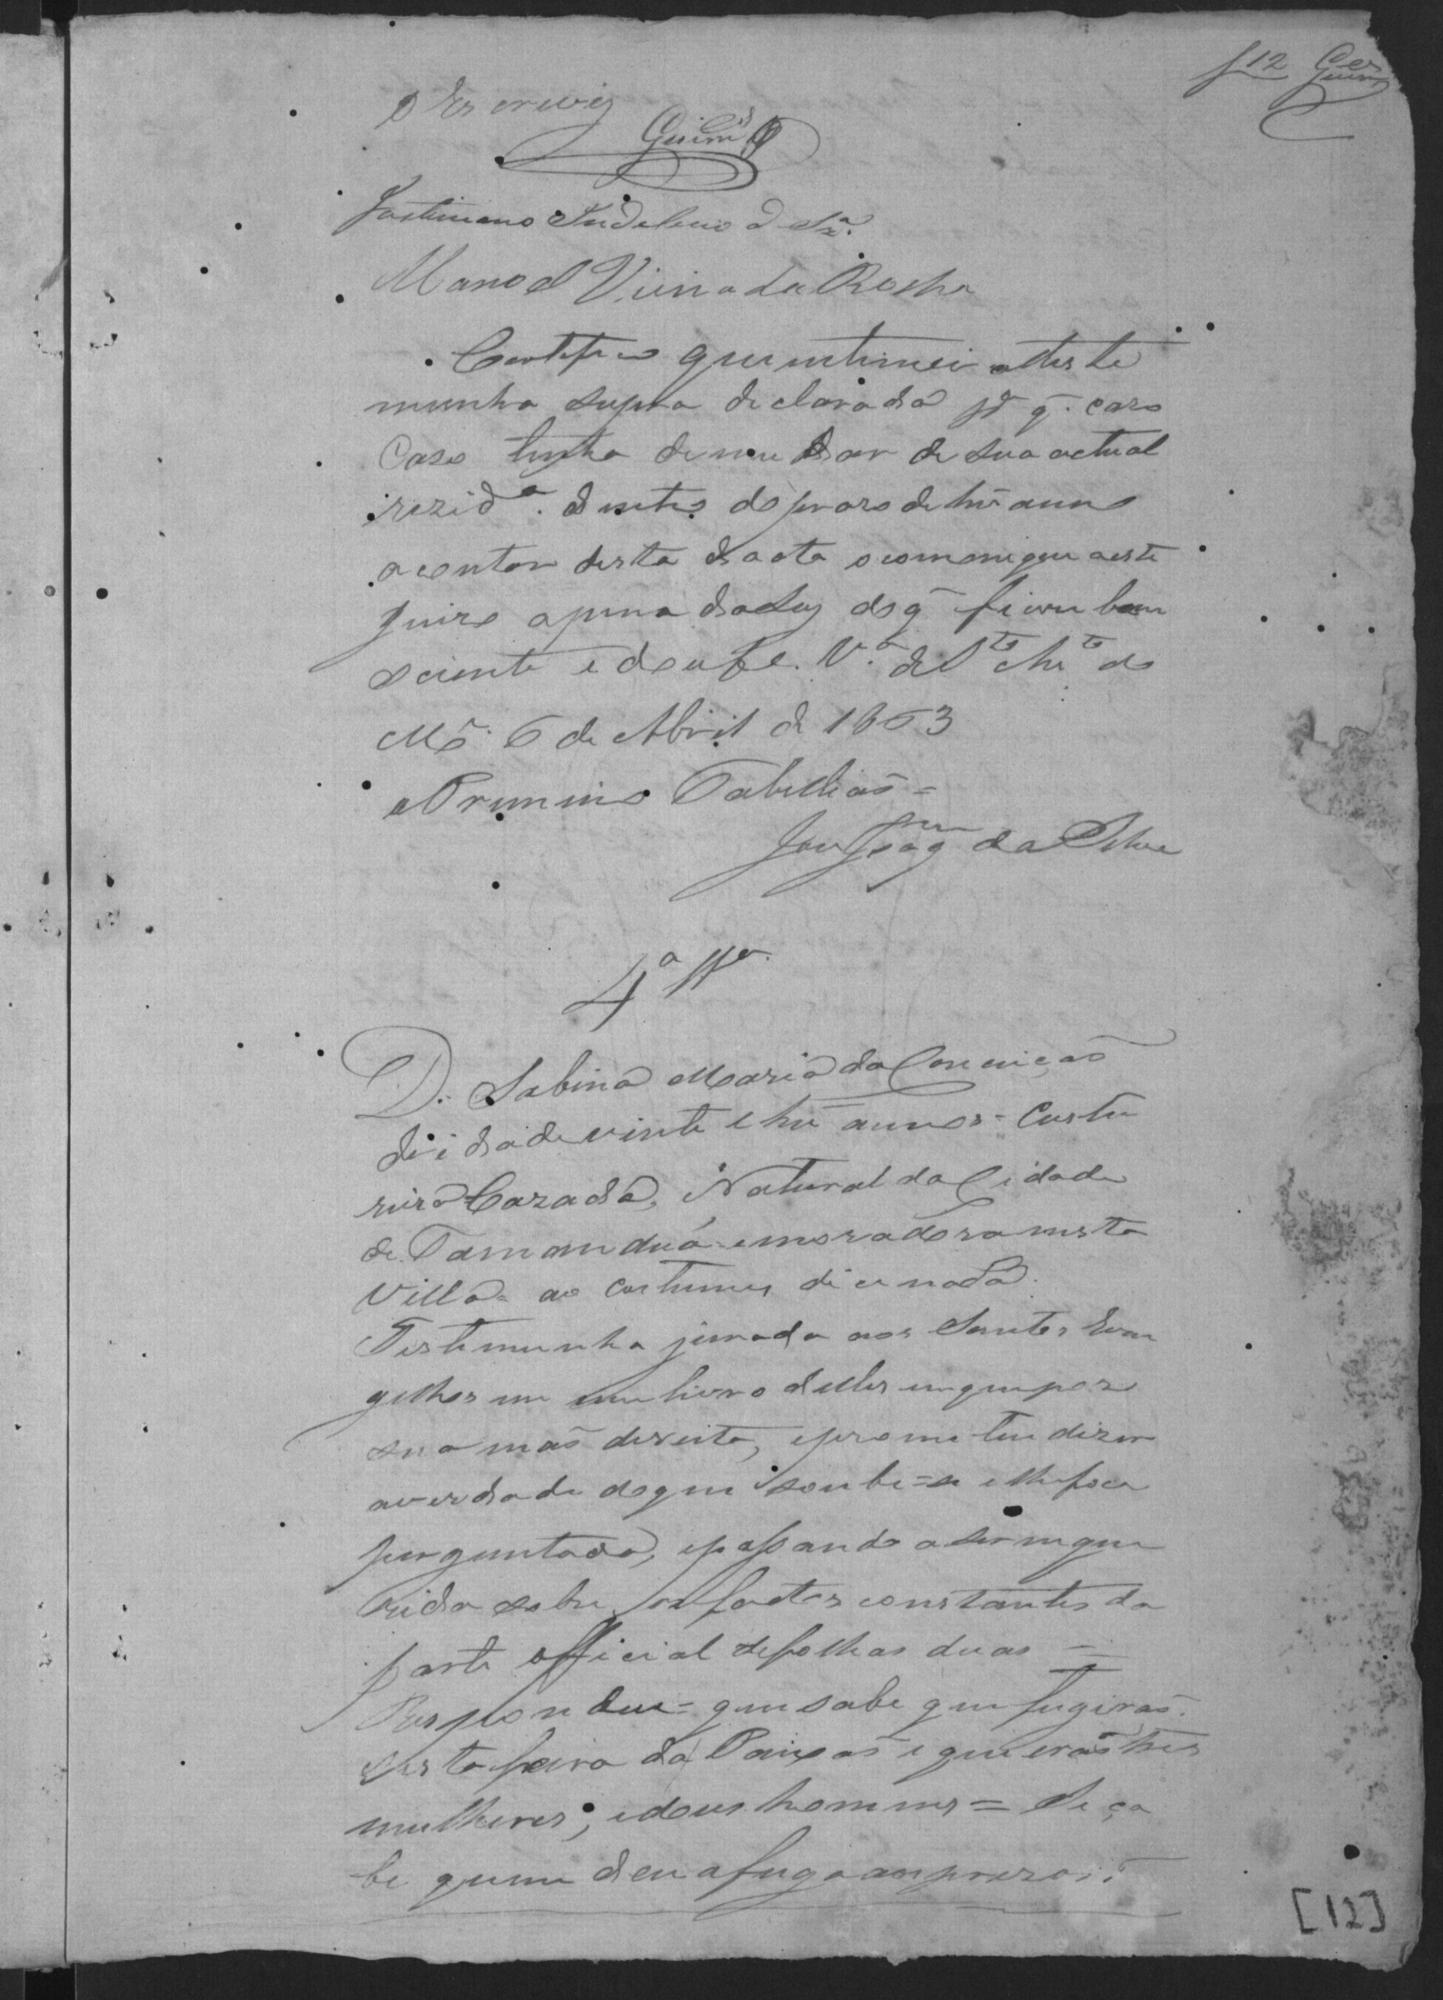 f 12 Guim.es
o Escrevi
Guim.es
Justiniano de Sza.
Manoel Vieira da Rocha
Certifico que intimei a teste
munha supra declarada pa. q. caro
Caso tenha de mudar de sua actual
rezida. dentro do praso de hũ anno
a contar desta data o comonique a este
Juizo a pena da Ley do q̃ ficou bem
sciente e dou fe. Va. de Sto. Anto. do
Me. 6 de Abril de 1863
O Primeiro Tabelliaõ =
José Joaqm. da Silva
4a. tta.
D. Sabina Maria da Conceiçaõ
de idade vinte e hũ annos - Costu
reira Cazada, Natural da Cidade
de Tamanduá e moradora nesta
Villa = ao costumes dice nada.
Testemunha jurada aos Santos Evan
gelhos em um livro delles em que poz
sua maõ direita, e prometeu dizer
a verdade do que soube = se e lhe foce
perguntada, e passando a ser inque
rida sobre os factos constantes da
parte official de folhas duas =
Respondeu = que sabe que fugiraõ
sesta feira da Paixaõ e que eraõ tres
mulheres, e dous homens = Se ça
be quem deu a fuga aos prezos?
[12]